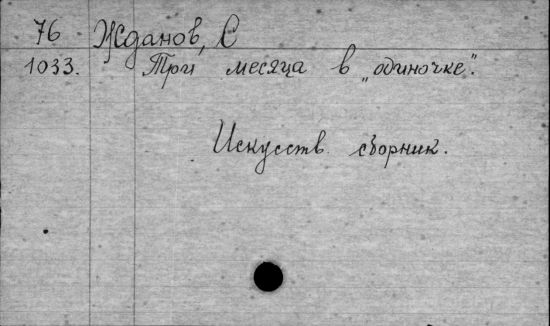 76 Жданов, С
1033. Три месяца в „одиночке".
Искусств. сборник.